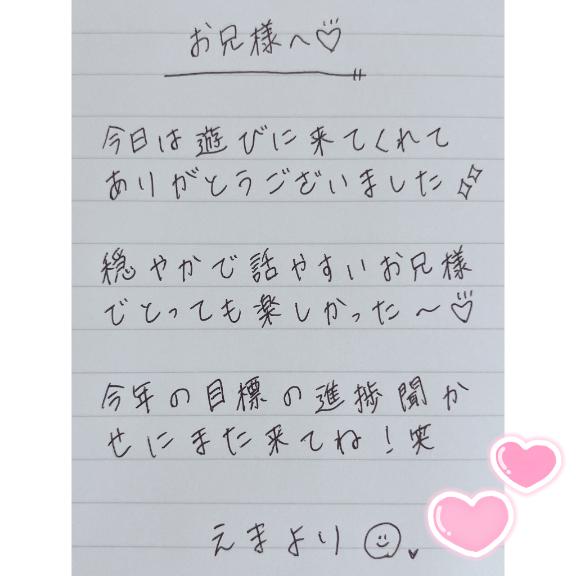 お兄様へ♡
今日は遊びに来てくれて
ありがとうございました✨
穏やかで話やすいお兄様
でとっても楽しかった〜♡
今年の目標の進捗聞か
せにまた来てね！笑
えまより☺♥